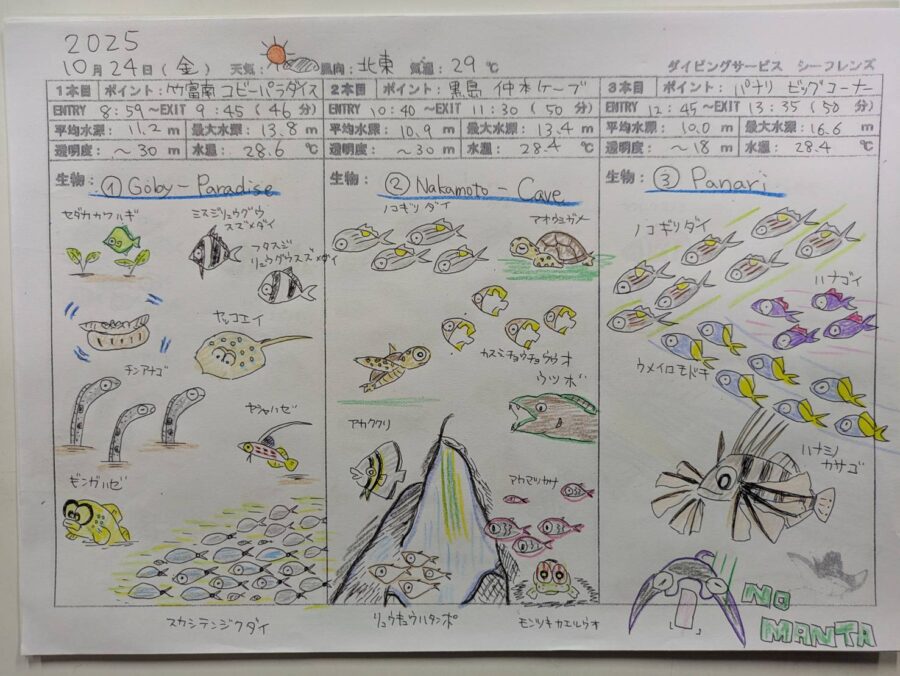 2025
10月24日(金) 天気: 風向: 北東 気温: 29℃ ダイビングサービス シーフレンズ
1本目 ポイント: 竹富南 コビーパラダイス
ENTRY 8:59 ～EXIT 9:45 (46分)
平均水深: 11.2 m 最大水深: 13.8 m
透明度: ～30 m 水温: 28.6 ℃
生物: ① Goby-Paradise
セダカカワハギ
ミスジリュウグウ
スズメダイ
フタスジ
リュウグウスズメダイ
ヤッコエイ
チンアナゴ
ヤシャハゼ
ギンガハゼ
スカシテンジクダイ
2本目 ポイント: 黒島 仲本ケーブ
ENTRY 10:40 ～EXIT 11:30 (50分)
平均水深: 10.9 m 最大水深: 13.4 m
透明度: ～30 m 水温: 28.4 ℃
生物: ② Nakamoto-Cave
ノコギリダイ
アオウミガメ
カスミチョウチョウウオ
ウツボ
アカククリ
アカマツカサ
リュウキュウハタンポ
モンツキカエルウオ
3本目 ポイント: パナリ ビッグコーナー
ENTRY 12:45 ～EXIT 13:35 (50分)
平均水深: 10.0 m 最大水深: 16.6 m
透明度: ～18 m 水温: 28.4 ℃
生物: ③ Panari
ノコギリダイ
ハナゴイ
ウメイロモドキ
ハナミノ
カサゴ
NO
MANTA